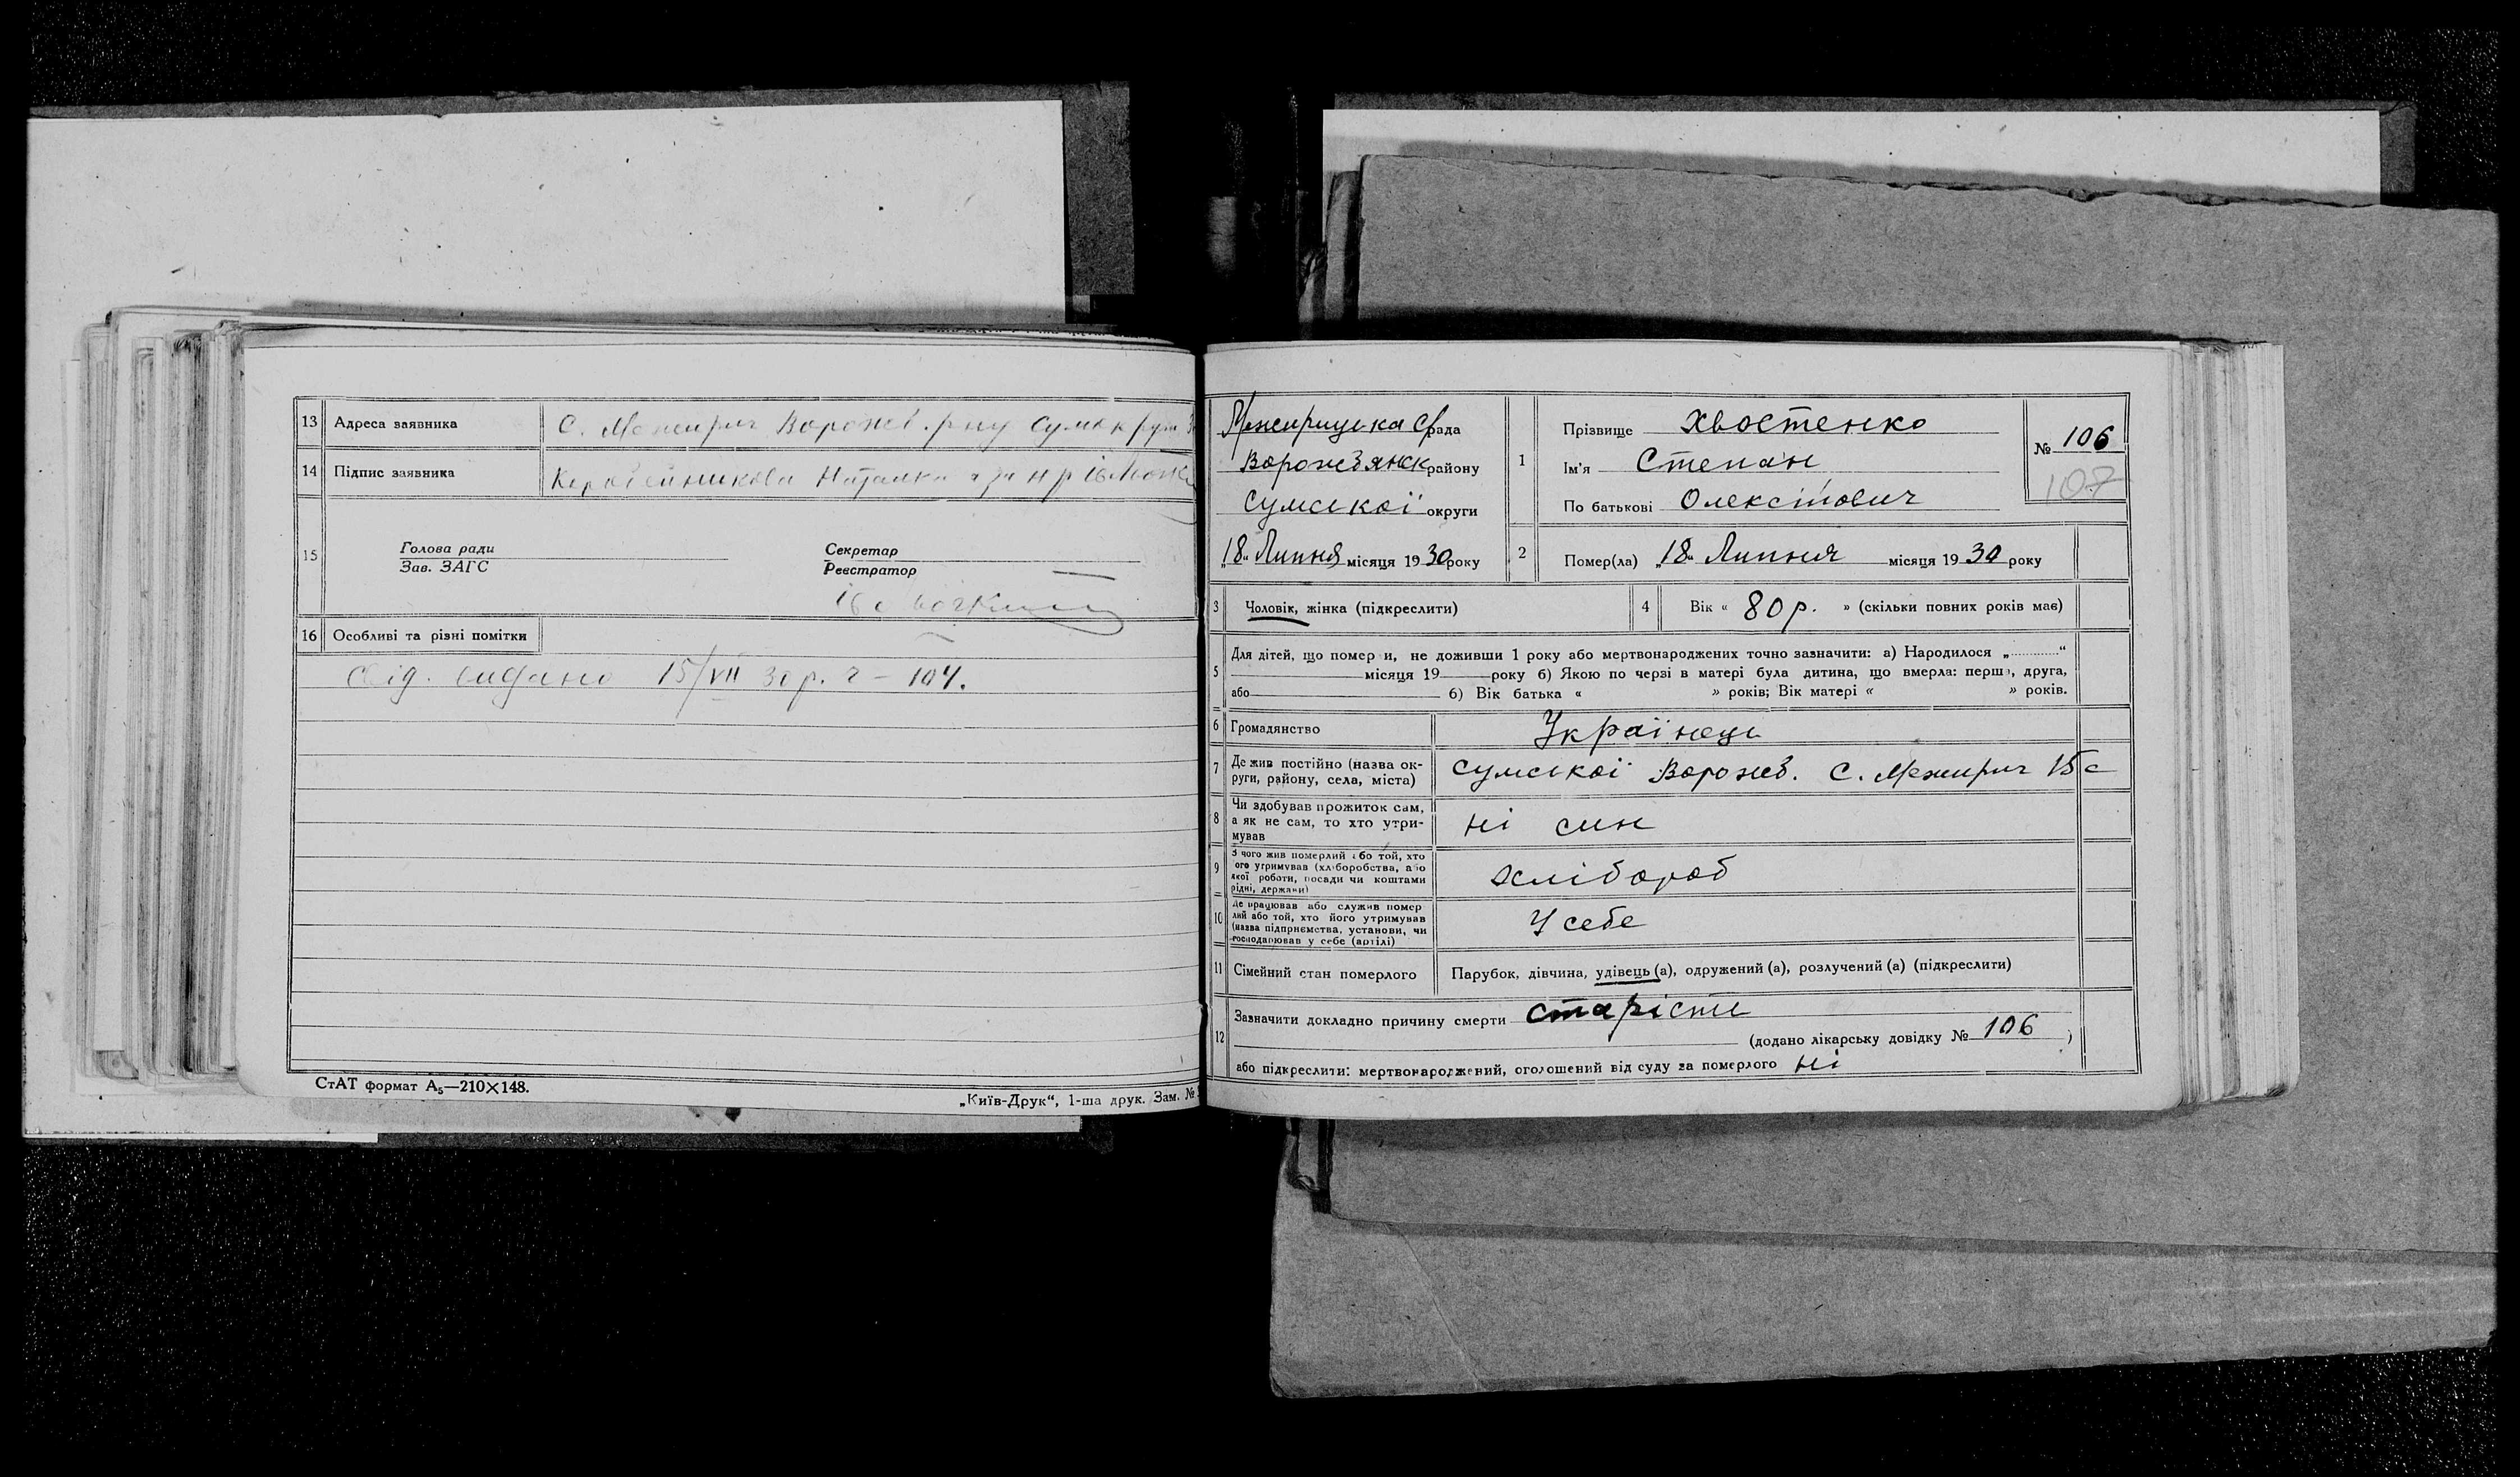 13 Адреса заявника С. Межирич Ворожб. р-ну Сумок
14 Підпис заявника Наталка
15 Голова ради Секретар
Зав. ЗАГС Реєстратор
16 Особливі та різні помітки
Свід. видано 15/VII 30 р. г – 104.
СтАТ формат А₅—210×148.
„Київ-Друк“, 1-ша друк. Зам. №
Межирицька С/рада
Ворожбянск району
Сумської округи
„18“ Липня місяця 1930 року
1 Прізвище Хвостенко
Ім'я Степан
По батькові Олексійович
№ 106
107
2 Помер(ла) „18“ Липня місяця 1930 року
3 Чоловік, жінка (підкреслити)
4 Вік « 80 р. » (скільки повних років має)
5 Для дітей, що помер и, не доживши 1 року або мертвонароджених точно зазначити: а) Народилося „ “
місяця 19 року б) Якою по черзі в матері була дитина, що вмерла: перша, друга,
або б) Вік батька « » років; Вік матері « » років.
6 Громадянство Українець
7 Де жив постійно (назва ок-
руги, району, села, міста) Сумської Ворожб. С. Межирич 15 с
8 Чи здобував прожиток сам,
а як не сам, то хто утри-
мував ні син
9 З чого жив померлий або той, хто
ого утримував (хліборобства, або
якої роботи, посади чи коштами
рідні, держави) хлібороб
10 Де працював або служив помер
лий або той, хто його утримував
(назва підприємства, установи, чи
господарював у себе (артілі) У себе
11 Сімейний стан померлого Парубок, дівчина, удівець (а), одружений (а), розлучений (а) (підкреслити)
12 Зазначити докладно причину смерти старість
(додано лікарську довідку № 106 )
або підкреслити: мертвонароджений, оголошений від суду за померлого ні